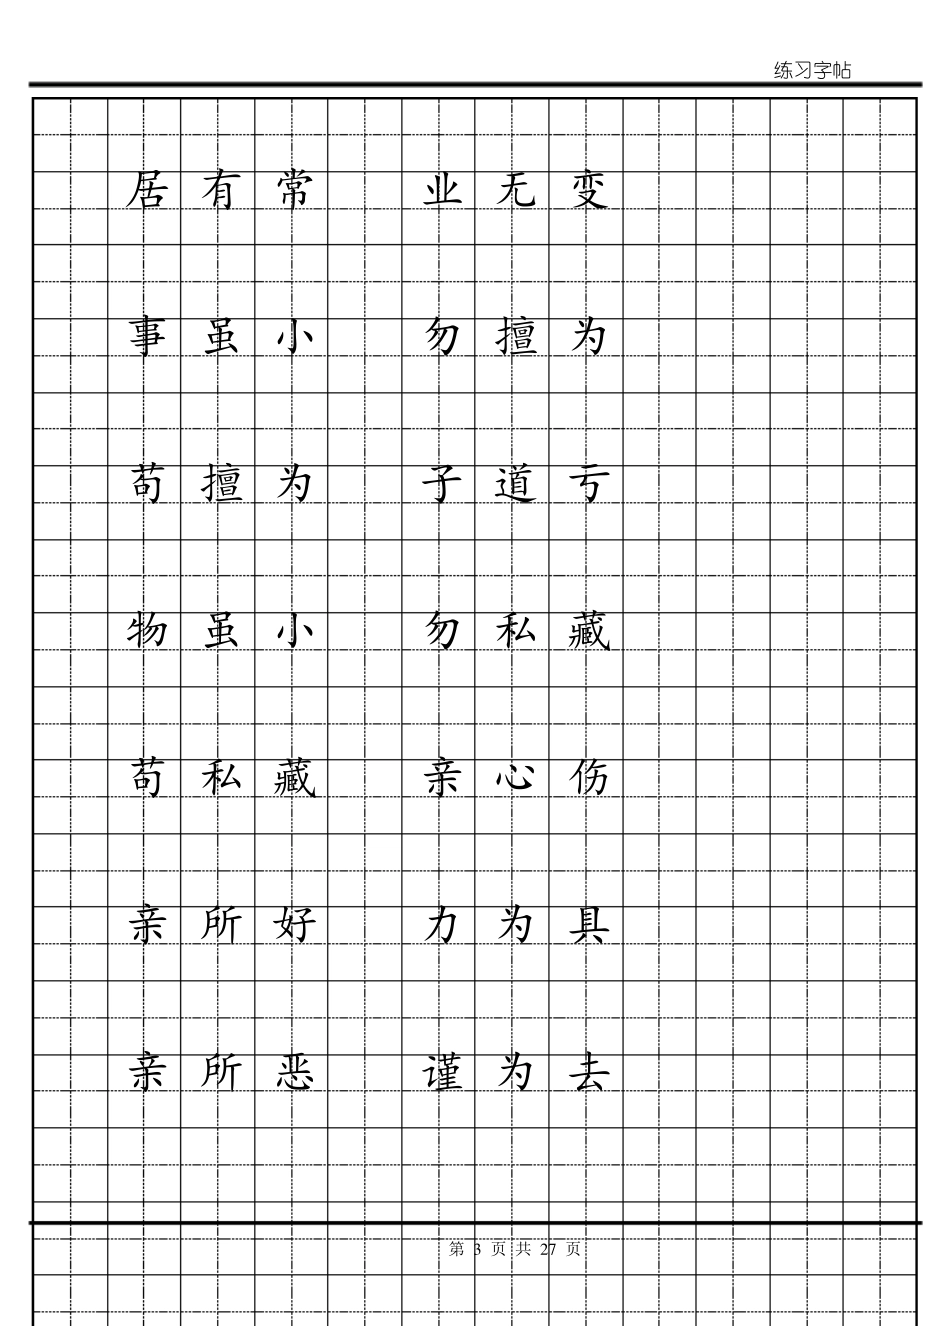 练习字帖
居有常 业无变
事虽小 勿擅为
苟擅为 子道亏
物虽小 勿私藏
苟私藏 亲心伤
亲所好 力为具
亲所恶 谨为去
第 3 页 共 27 页